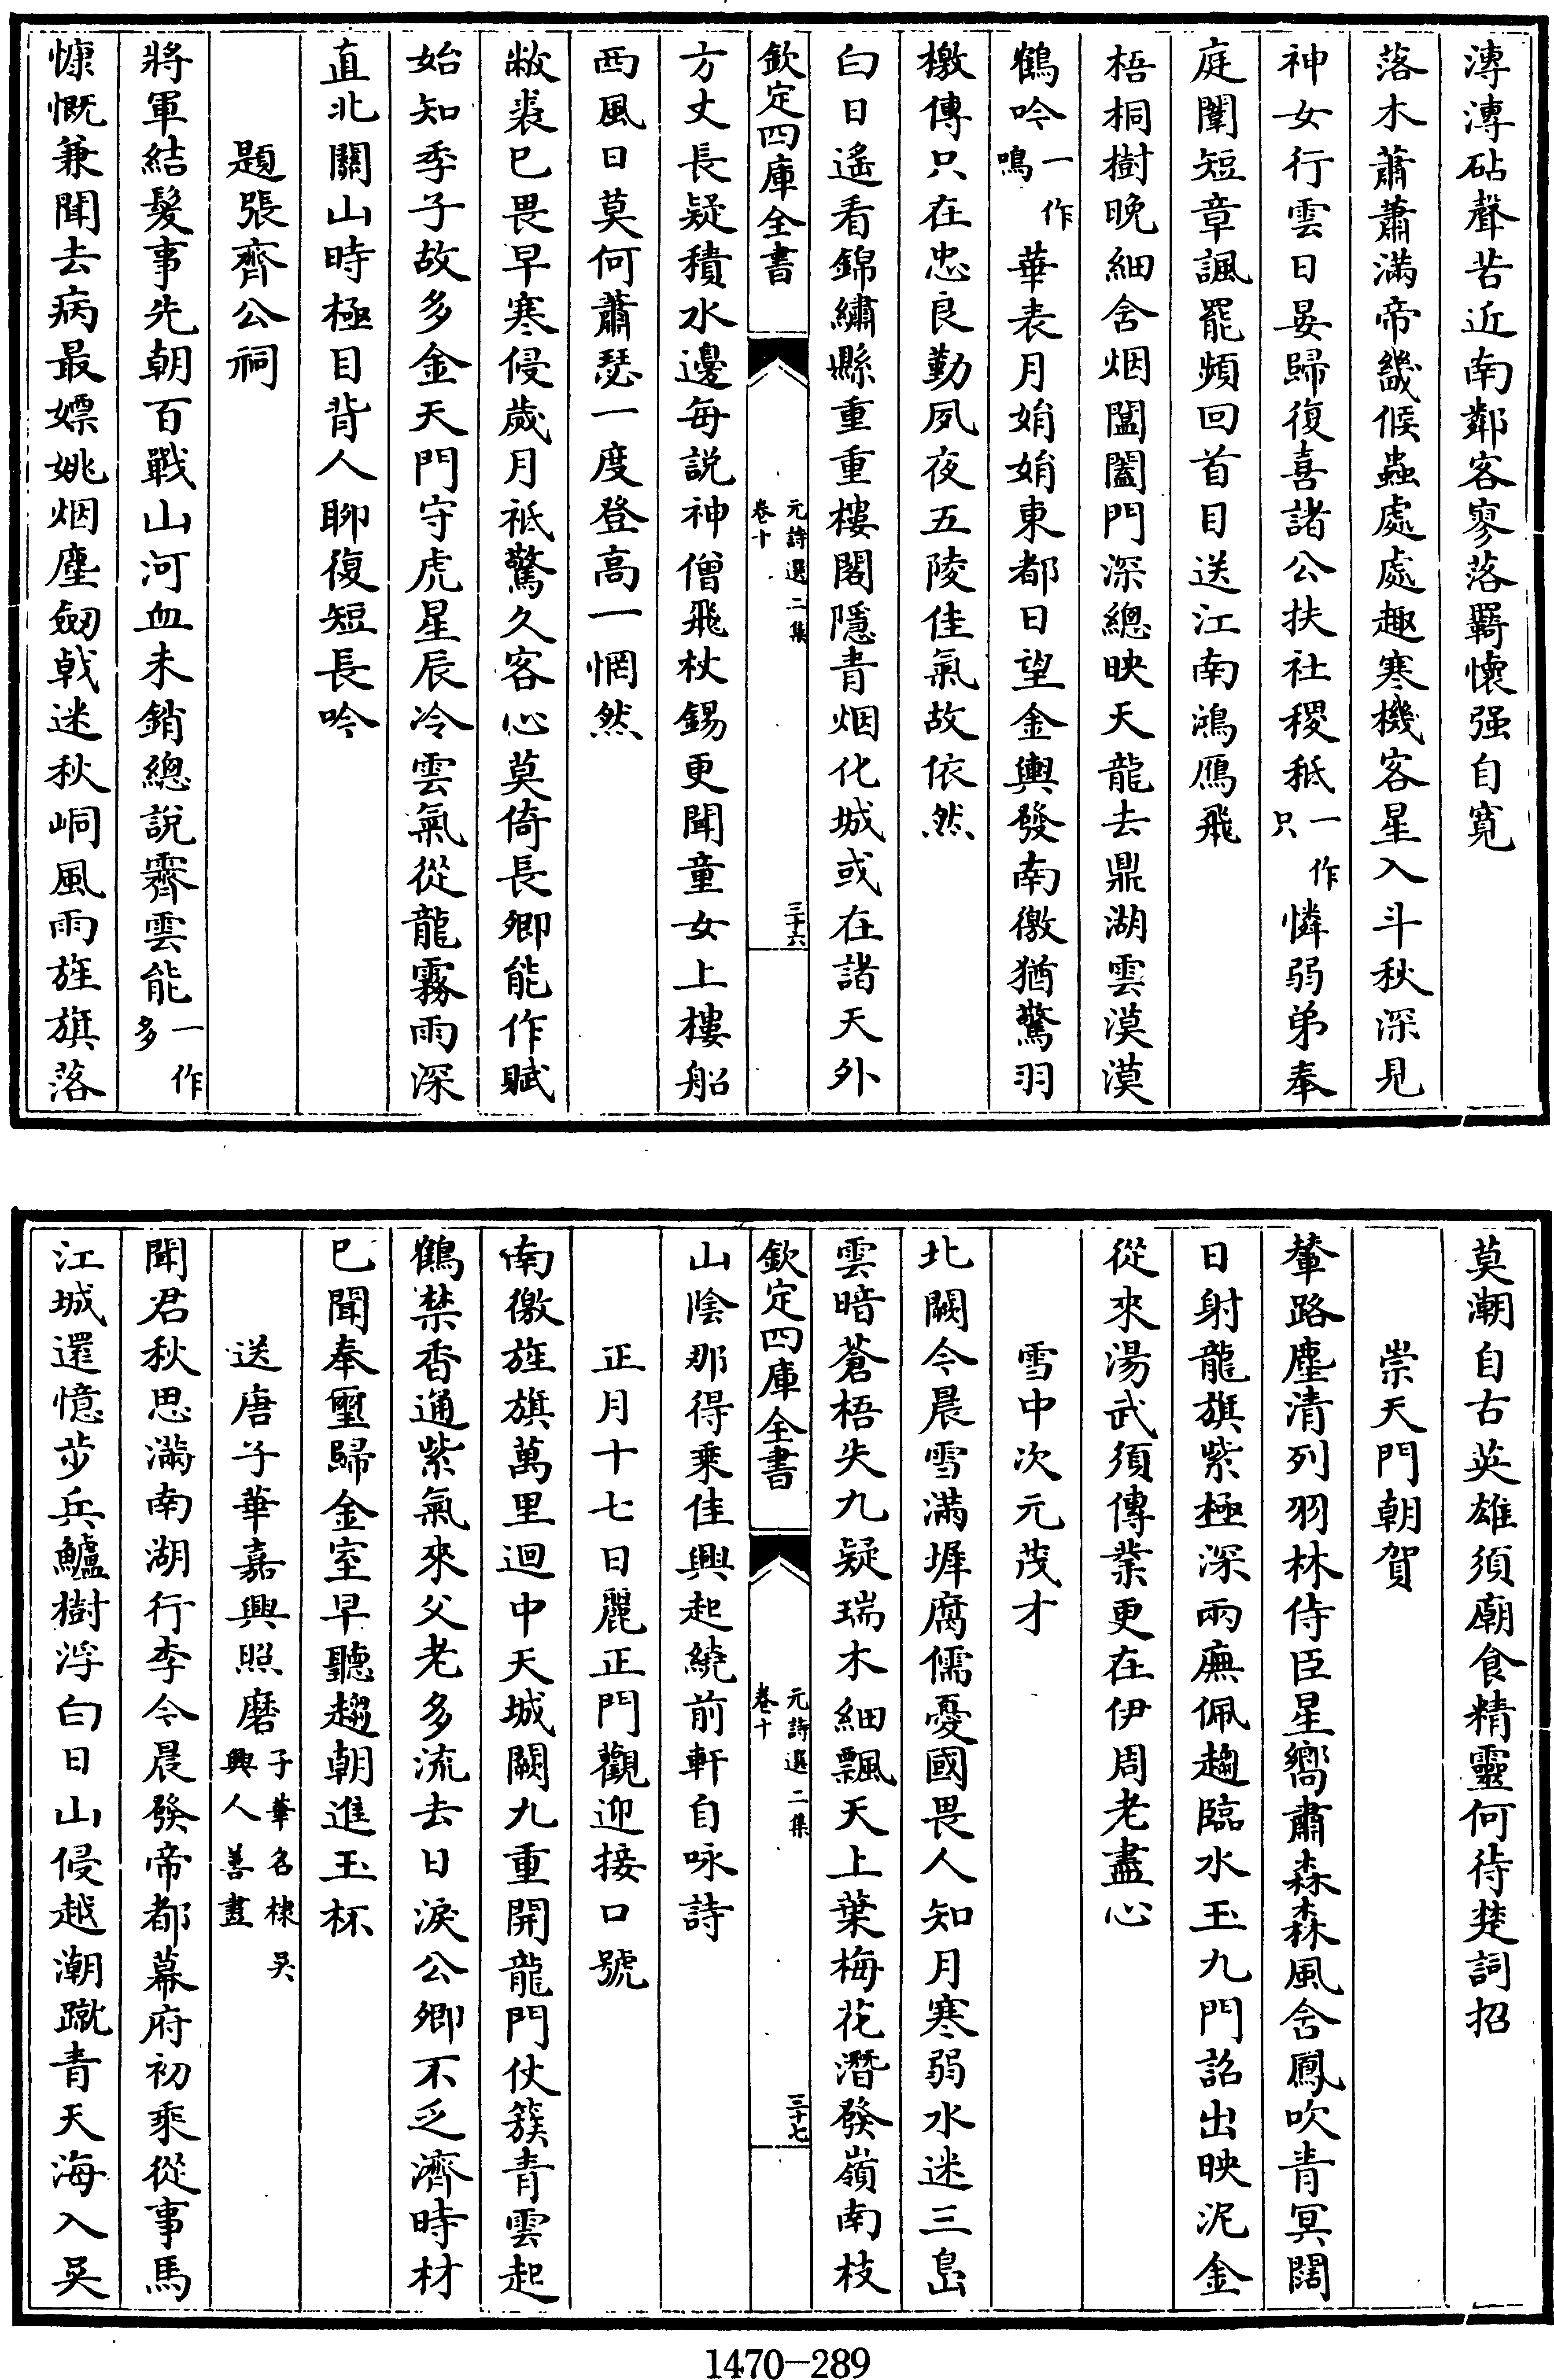 漙漙砧聲苦近南鄰客寥落羇懷强自寛
落木蕭蕭滿帝畿候蟲處處趣寒機客星入斗秋深見
神女行雲日晏歸復喜諸公扶社稷秪一作只憐弱弟奉
庭闈短章諷罷頻回首目送江南鴻鴈飛
梧桐樹晚細含烟閶闔門深總映天龍去鼎湖雲漠漠
鶴吟一作鳴華表月娟娟東都日望金輿發南徼猶驚羽
檄傳只在忠良勤夙夜五陵佳氣故依然
白日遙看錦繡縣重重樓閣隱青烟化城或在諸天外
欽定四庫全書
元詩選二集
卷十
三十六
方丈長疑積水邊每説神僧飛杖錫更聞童女上樓船
西風日莫何蕭瑟一度登高一惘然
敝裘已畏早寒侵歲月祗驚久客心莫倚長卿能作賦
始知季子故多金天門守虎星辰冷雲氣從龍霧雨深
直北關山時極目背人聊復短長吟
題張齊公祠
將軍結髮事先朝百戰山河血未銷總說霽雲能一作多
慷慨兼聞去病最嫖姚烟塵劒戟迷秋峒風雨旌旗落
莫潮自古英雄須廟食精靈何待楚詞招
崇天門朝賀
輦路塵清列羽林侍臣星嚮肅森森風含鳳吹青冥闊
日射龍旗紫極深兩廡佩趨臨水玉九門詔出映泥金
從來湯武須傳業更在伊周老盡心
雪中次元茂才
北闕今晨雪滿墀腐儒憂國畏人知月寒弱水迷三島
雲暗蒼梧失九疑瑞木細飄天上葉梅花潛發嶺南枝
欽定四庫全書
元詩選二集
卷十
三十七
山陰那得乗佳興起繞前軒自咏詩
正月十七日麗正門觀迎接口號
南徼旌旗萬里迴中天城闕九重開龍門仗簇青雲起
鶴禁香通紫氣來父老多流去日淚公卿不乏濟時材
已聞奉璽歸金室早聽趨朝進玉杯
送唐子華嘉興照磨子華名棣吳興人善畫
聞君秋思滿南湖行李今晨發帝都幕府初乘從事馬
江城還憶步兵鱸樹浮白日山侵越潮蹴青天海入吳
1470—289